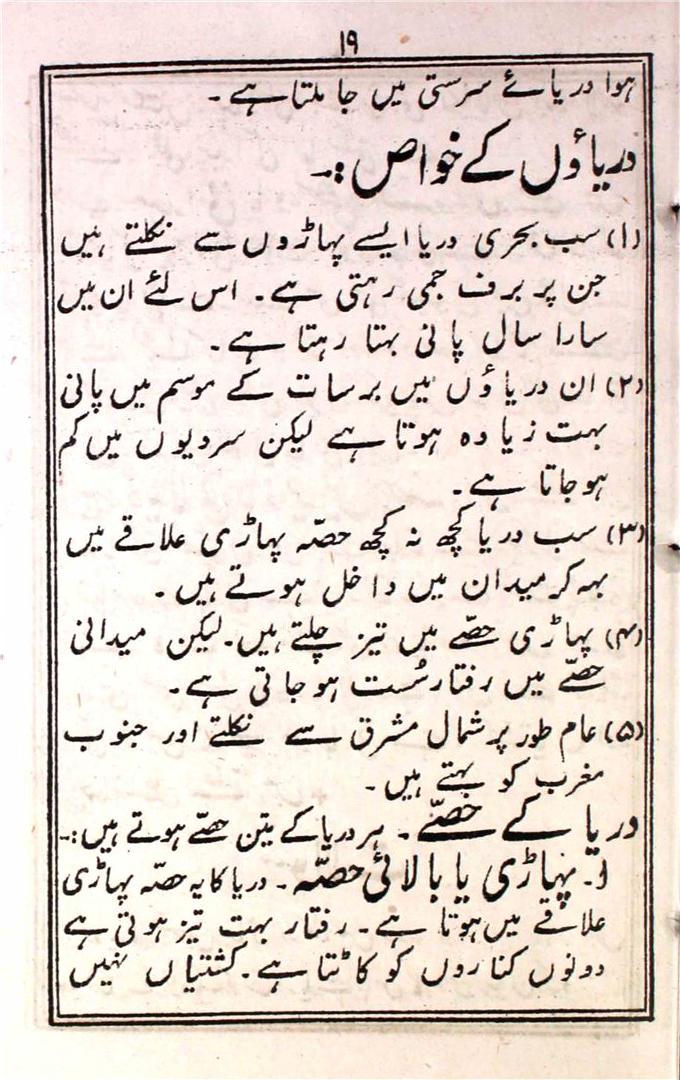 ۱۹
ہوا دریائے سرستی میں جا ملتا ہے۔
دریاؤں کے خواص :۔
(۱) سب بحری دریا ایسے پہاڑوں سے نکلتے ہیں
جن پر برف جمی رہتی ہے۔ اس لئے ان میں
سارا سال پانی بہتا رہتا ہے۔
(۲) ان دریاؤں میں برسات کے موسم میں پانی
بہت زیادہ ہوتا ہے لیکن سردیوں میں کم
ہو جاتا ہے۔
(۳) سب دریا کچھ نہ کچھ حصّہ پہاڑی علاقے میں
بہہ کر میدان میں داخل ہوتے ہیں۔
(۴) پہاڑی حصّے میں تیز چلتے ہیں۔ لیکن میدانی
حصّے میں رفتار سُست ہو جاتی ہے۔
(۵) عام طور پر شمال مشرق سے نکلتے اور جنوب
مغرب کو بہتے ہیں۔
دریا کے حصّے۔ ہر دریا کے تین حصّے ہوتے ہیں :۔
۱۔ پہاڑی یا بالائی حصّہ۔ دریا کا یہ حصّہ پہاڑی
علاقے میں ہوتا ہے۔ رفتار بہت تیز ہوتی ہے
دونوں کناروں کو کاٹتا ہے۔ کشتیاں نہیں